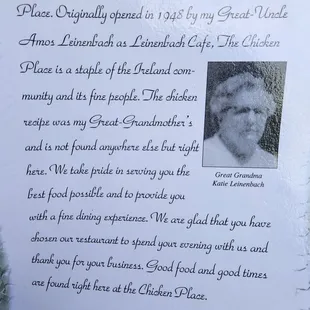 Place. Originally opened in 1948 by my Great-Uncle
Amos Leinenbach as Leinenbach Cafe, The Chicken
Place is a staple of the Ireland com-
munity and its fine people. The chicken
recipe was my Great-Grandmother's
and is not found anywhere else but right
here. We take pride in serving you the
best food possible and to provide you
with a fine dining experience. We are glad that you have
chosen our restaurant to spend your evening with us and
thank you for your business. Good food and good times
are found right here at the Chicken Place.
Great Grandma
Katie Leinenbach